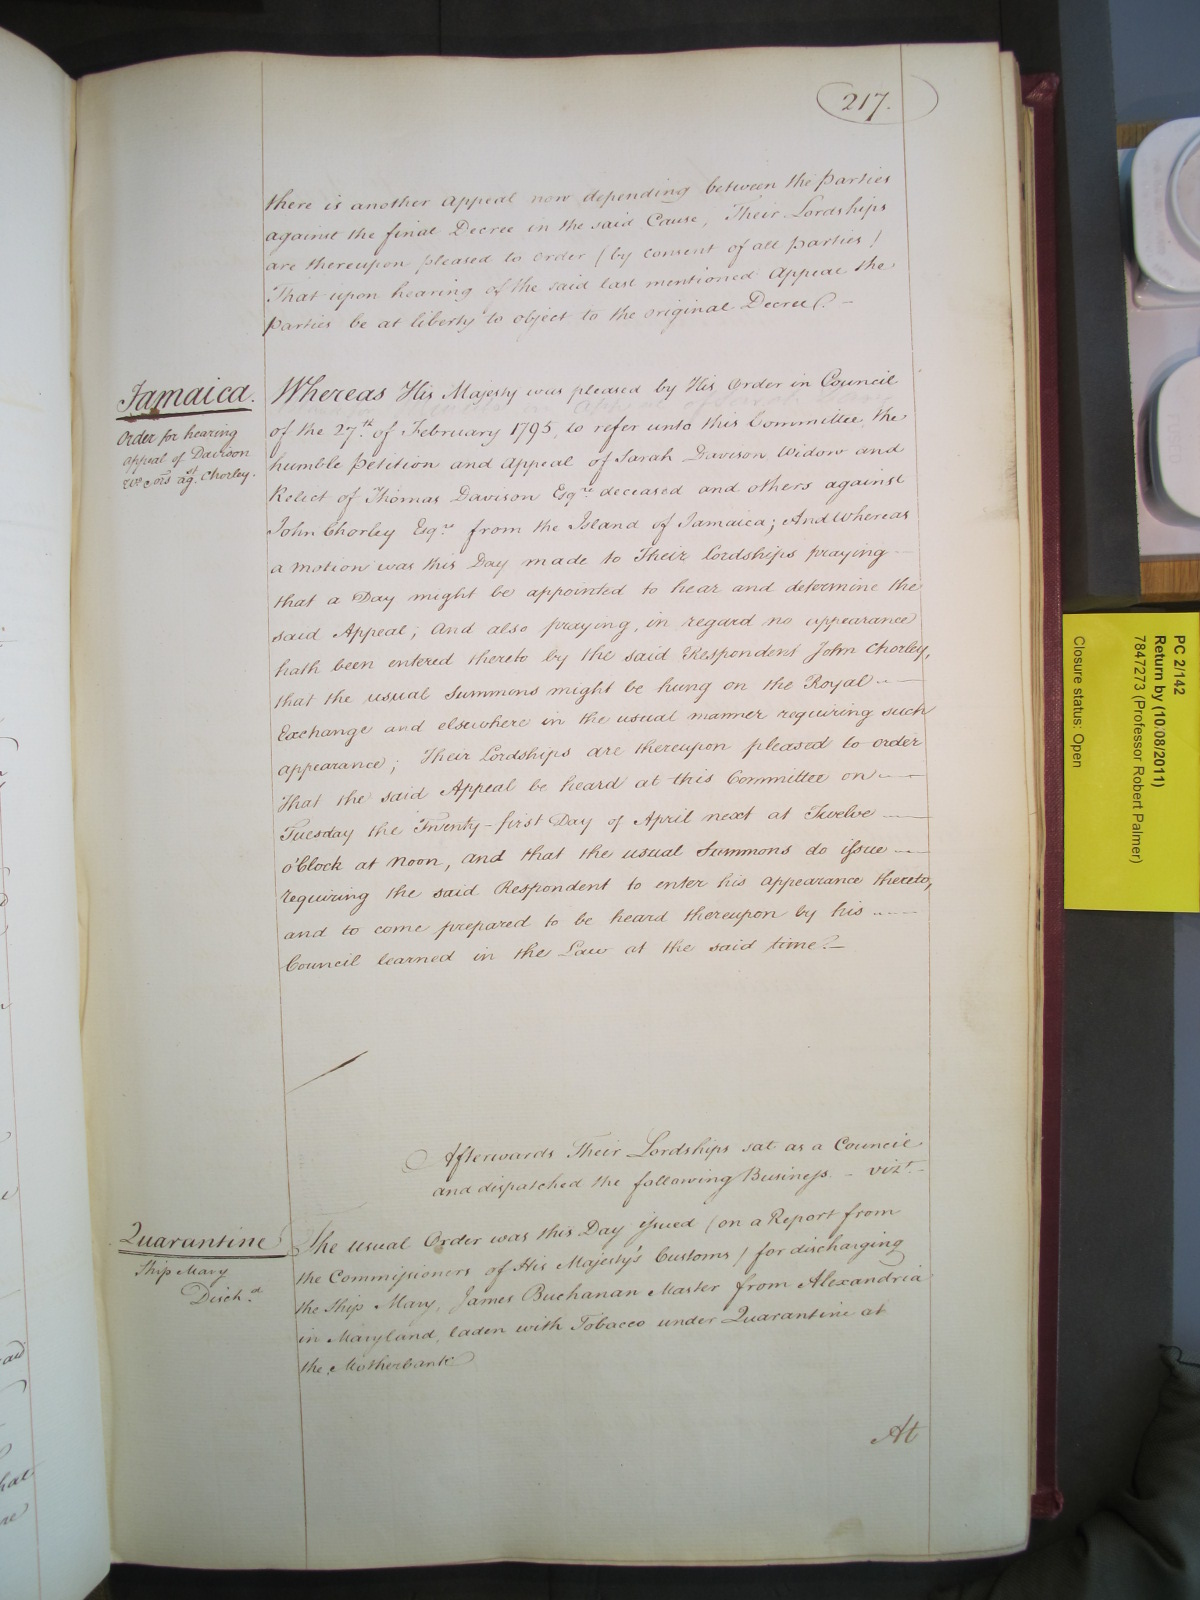 217.
there is another Appeal now depending between the Parties
against the final Decree in the said Cause, Their Lordships
are thereupon pleased to Order (by consent of all Parties)
That upon hearing of the said last mentioned Appeal the
Parties be at liberty to object to the original Decree.
Jamaica.
Order for hearing
Appeal of Davison
Wo. & ors agt. Chorley.
Whereas His Majesty was pleased by His Order in Council
of the 27th. of February 1795, to refer unto this Committee, the
humble Petition and Appeal of Sarah Davison Widow and
Relect of Thomas Davison Esqre. deceased and others against
John Chorley Esqre. from the Island of Jamaica; And Whereas
a motion was this Day made to Their Lordships praying
that a Day might be appointed to hear and determine the
said Appeal; And also praying, in regard no appearance
hath been entered thereto by the said Respondent John Chorley,
that the usual Summons might be hung on the Royal
Exchange and elsewhere in the usual manner requiring such
appearance; Their Lordships are thereupon pleased to order
That the said Appeal be heard at this Committee on
Tuesday the Twenty-first Day of April next at Twelve
o'Clock at Noon, and that the usual Summons do issue
requiring the said Respondent to enter his appearance thereto,
and to come prepared to be heard thereupon by his
Council learned in the Law at the said time.
Afterwards Their Lordships sat as a Council
and dispatched the following Business - vizt. -
Quarantine
Ship Mary
Dischd.
The usual Order was this Day issued (on a Report from
the Commissioners of His Majesty's Customs) for discharging
the Ship Mary, James Buchanan Master from Alexandria
in Maryland, laden with Tobacco under Quarantine at
the Motherbank
At
PC 2/142
Return by (10/08/2011)
7847273 (Professor Robert Palmer)
Closure status: Open